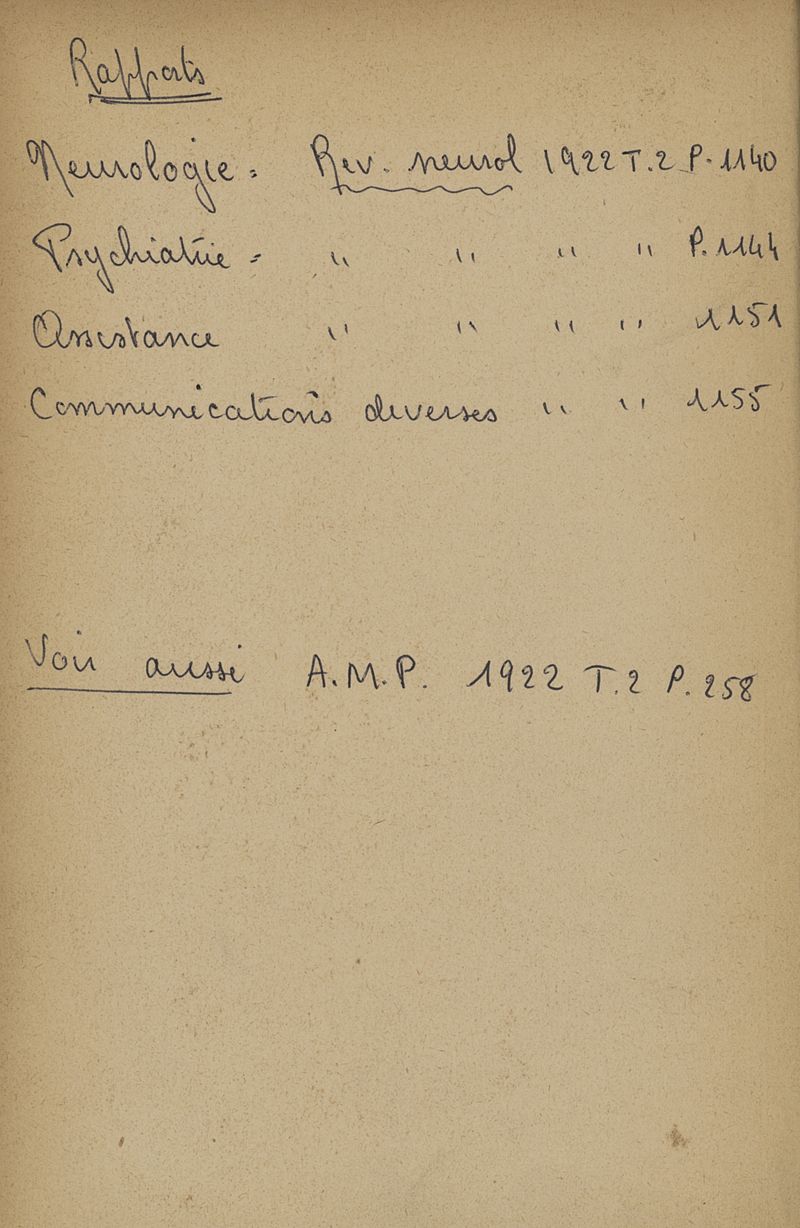 Rapports
Neurologie = Rev. neurol 1922 T.2 P. 1140
Psychiatrie = " " " " P. 1144
Assistance " " " " 1151
Communications diverses " " 1155
Voir aussi A.M.P. 1922 T.2 P. 258